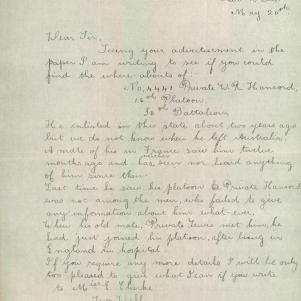 May 20th.
Dear Sir,
Seeing your advertisement in the
paper I am writing to see if you could
find the where abouts of:-
No. 4441 Private W. R. Hancord,
Platoon,
Battalion
He enlisted in this state about two years ago
but we do not know when he left Australia.
A mate of his in France saw him twelve
months ago and has neither seen nor heard anything
of him since then.
Last time he saw his platoon Private Hancord
was not among the men, who failed to give
any information about him what ever.
When his old mate, Private Lewis met him, he
had just joined his platoon, after being in
England in hospital
If you require any more details I will be only
too pleased to give what I can if you write
to E. Clarke